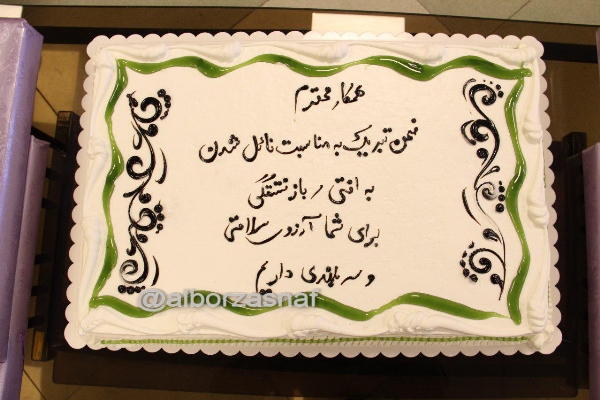 همکار محترم
ضمن تبریک به مناسبت نائل شدن
به افتخار بازنشستگی
برای شما آرزوی سلامتی
و سربلندی داریم
@alborzasnaf